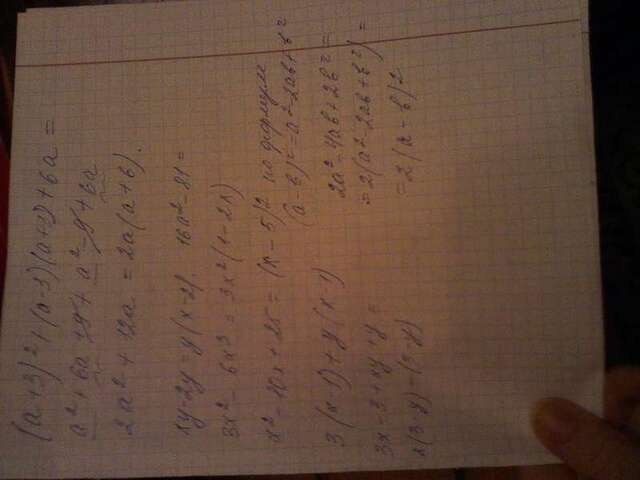 (a+3)²+(a-3)(a+3)+6a =
a²+6a+9+a²-9+6a
2a²+12a = 2a(a+6).
xy-2y = y(x-2). 16a²-81 =
3x²-6x³ = 3x²(1-2x)
x²-10x+25 = (x-5)² по формуле
(a-b)²=a²-2ab+b²
3(x-1)+y(x-1)
2a²-4ab+2b² =
3x-3+xy-y =
=2(a²-2ab+b²) =
x(3-y)-(3-y)
=2(a-b)²